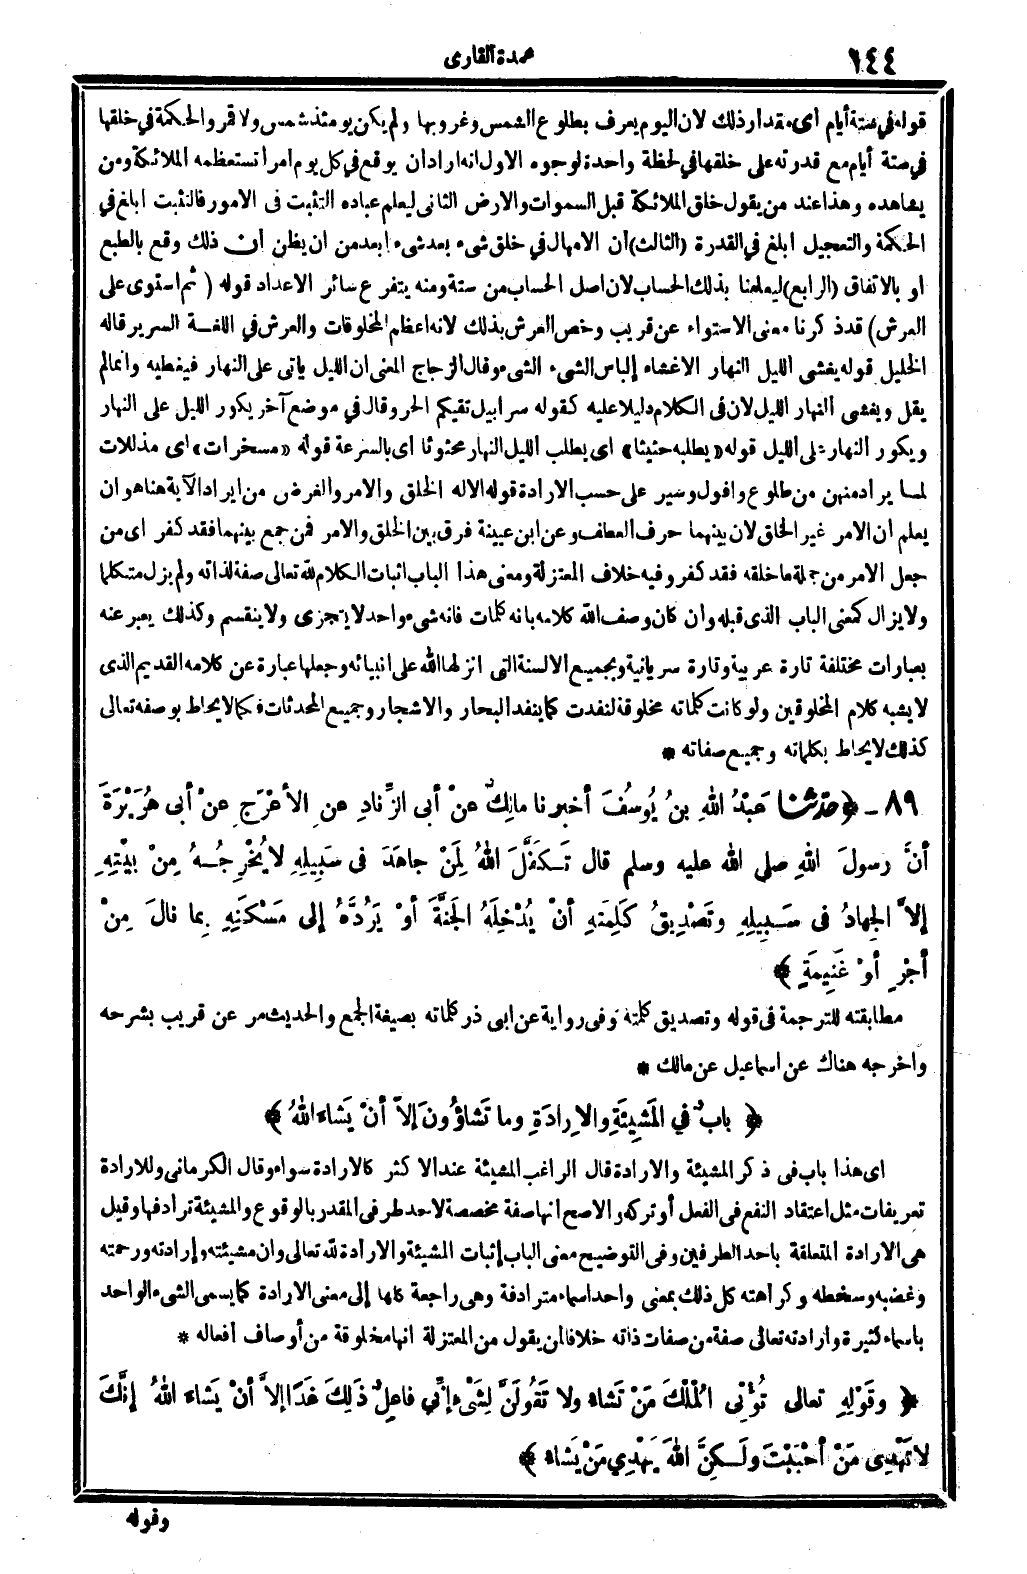 ١٤٤
عمدة القارى
قوله في ستة أيام أى مقدار ذلك لان اليوم يعرف بطلوع الشمس وغروبها ولم يكن يومئذ شمس ولا قمر والحكمة في خلقها
في ستة أيام مع قدرته على خلقها في لحظة واحدة لوجوه الاول انه اراد ان يوقع في كل يوم امرا تستعظمه الملائكة ومن
يشاهده وهذا عند من يقول خلق الملائكة قبل السموات والارض الثانى ليعلم عباده التثبت فى الامور فالتثبت ابلغ في
الحكمة والتعجيل ابلغ في القدرة (الثالث) أن الامهال في خلق شىء بعد شىء ابعد من ان يظن أن ذلك وقع بالطبع
او بالاتفاق (الرابع) ليعلمنا بذلك الحساب لان اصل الحساب من ستة ومنه يتفرع سائر الاعداد قوله (ثم استوى على
العرش) قد ذكرنا معنى الاستواء عن قريب وخص العرش بذلك لانه اعظم المخلوقات والعرش في اللغة السرير قاله
الخليل قوله يغشى الليل النهار الاغشاء إلباس الشىء الشىء وقال الزجاج المعنى ان الليل ياتى على النهار فيغطيه وانما لم
يقل ويغشى النهار الليل لان فى الكلام دليلا عليه كقوله سرابيل تقيكم الحر وقال في موضع آخر يكور الليل على النهار
ويكور النهار على الليل قوله «يطلبه حثيثا» اى يطلب الليل النهار محثوثا اى بالسرعة قوله «مسخرات» اى مذللات
لما يراد منهن من طلوع وافول وسير على حسب الارادة قوله الاله الخلق والامر والغرض من ايراد الآية هنا هو ان
يعلم ان الامر غير الخلق لان بينهما حرف العطف وعن ابن عيينة فرق بين الخلق والامر فمن جمع بينهما فقد كفر اى من
جعل الامر من جملة ما خلقه فقد كفر وفيه خلاف المعتزلة ومعنى هذا الباب اثبات الكلام لله تعالى صفة لذاته ولم يزل متكلما
ولا يزال كمعنى الباب الذى قبله وان كان وصف الله كلامه بانه كلمات فانه شىء واحد لا يتجزى ولا ينقسم وكذلك يعبر عنه
بعبارات مختلفة تارة عربية وتارة سريانية وبجميع الالسنة التى انزلها الله على انبيائه وجعلها عبارة عن كلامه القديم الذى
لا يشبه كلام المخلوقين ولو كانت كلماته مخلوقة لنفدت كما ينفد البحار والاشجار وجميع المحدثات فكما لا يحاط بوصفه تعالى
كذلك لا يحاط بكلماته وجميع صفاته *
٨٩ - ﴿حدثنا عَبْدُ اللهِ بنُ يُوسُفَ أخبرنا مالِكٌ عنْ أبى الزِّنادِ عنِ الأعْرَجِ عنْ أبى هُرَيْرَةَ
أنَّ رسولَ اللهِ صلى الله عليه وسلم قال تَكَفَّلَ اللهُ لِمَنْ جاهَدَ فى سَبِيلِهِ لا يُخْرِجُهُ مِنْ بَيْتِهِ
إلاَّ الجِهادُ فى سَبِيلِهِ وتَصْدِيقُ كَلِمَتِهِ أنْ يُدْخِلَهُ الجَنَّةَ أوْ يَرُدَّهُ إلى مَسْكَنِهِ بِما نالَ مِنْ
أجْرٍ أوْ غَنِيمَةٍ﴾
مطابقته للترجمة فى قوله وتصديق كلمته وفى رواية عن ابى ذر كلماته بصيغة الجمع والحديث مر عن قريب بشرحه
واخرجه هناك عن اسماعيل عن مالك *
﴿ بابٌ في المَشِيئَةِ والإرادَةِ وما تَشاؤُونَ إلاَّ أنْ يَشاءَ اللهُ ﴾
اى هذا باب فى ذكر المشيئة والارادة قال الراغب المشيئة عند الاكثر كالارادة سواء وقال الكرمانى وللارادة
تعريفات مثل اعتقاد النفع فى الفعل أو تركه والاصح انها صفة مخصصة لاحد طرفى المقدر بالوقوع والمشيئة ترادفها وقيل
هى الارادة المتعلقة باحد الطرفين وفى التوضيح معنى الباب إثبات المشيئة والارادة لله تعالى وان مشيئته وإرادته ورحمته
وغضبه وسخطه وكراهته كل ذلك بمعنى واحد اسماء مترادفة وهى راجعة كلها إلى معنى الارادة كما يسمى الشىء الواحد
باسماء كثيرة وارادته تعالى صفة من صفات ذاته خلافا لمن يقول من المعتزلة انها مخلوقة من أوصاف أفعاله *
﴿ وقَوْلِهِ تعالى تُؤْتِى المُلْكَ مَنْ تَشاءُ ولا تَقُولَنَّ لِشَىْءٍ إنِّي فاعِلٌ ذَلِكَ غَدًا إلاَّ أنْ يَشاءَ اللهُ إنَّكَ
لا تَهْدِى مَنْ أحْبَبْتَ ولَكِنَّ اللهَ يَهْدِي مَنْ يَشاءُ ﴾
وقوله